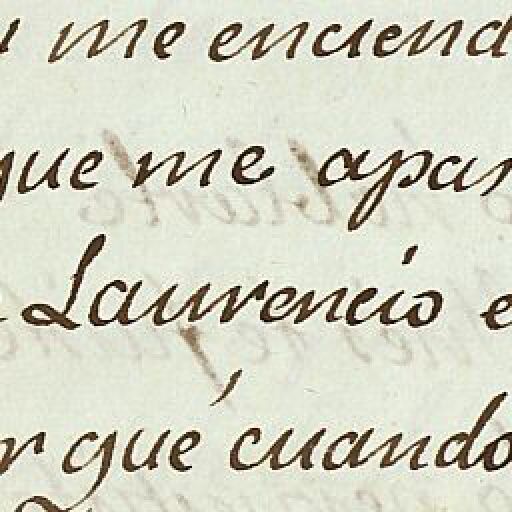 me enciend
que me apar
Laurencio e
r qué cuando